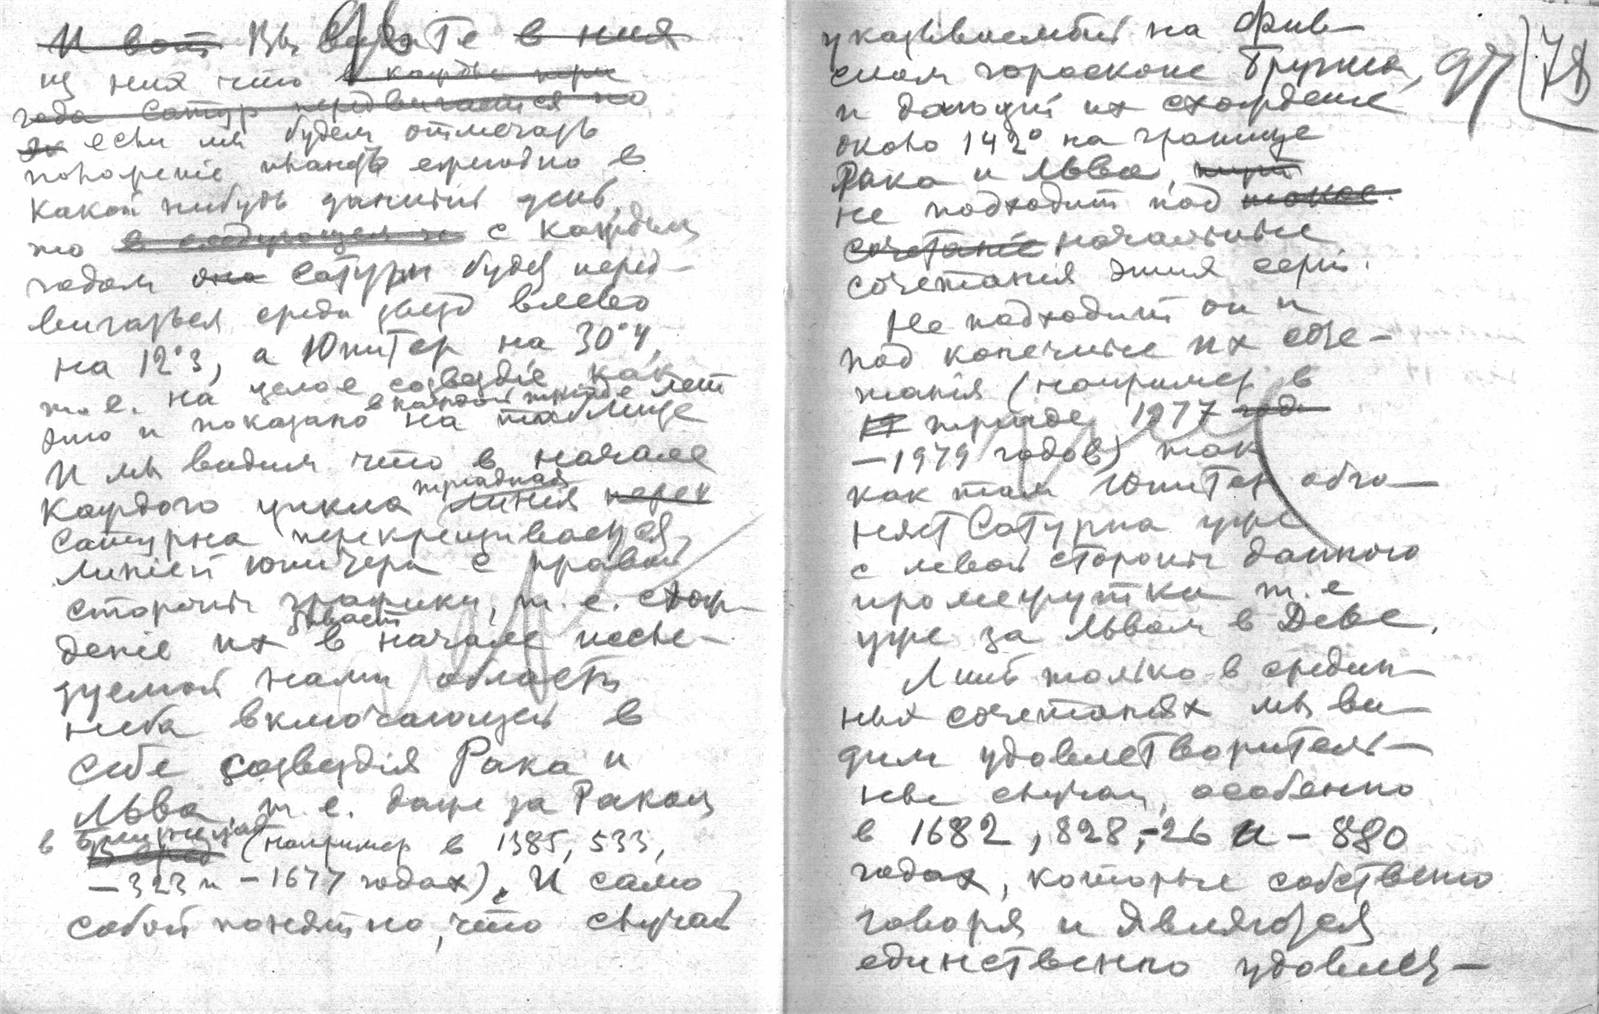 И вот Вы видите в них
из них что в каждые три
года Сатур передвигается по
если мы будем отмечать
положеніе планеты ежегодно в
какой нибудь данный день,
то в следующем с каждым
годом она Сатурн будет перед-
вигаться среди звезд влево
на 12°3, а Юпитер на 30°4,
т. е. на целое созвездіе как
в каждой триаде лет
это и показано на таблице
И мы видим что в начале
каждого цикла триадная линія перек
Сатурна перекрещивается
линіей Юпитера с правой
стороны графики, т. е. схож-
деніе их бывает в начале иссле-
дуемой нами области
неба включающей в
себе созвездія Рака и
Льва, т. е. даже за Раком
в Близнецах (например в 1385, 533,
–323 и –1677 годах). И само
собой понятно, что случай
указываемый на Фив-
ском гороскопе Бругша, 97 78
и дающий их схожденіе
около 142° на границе
Рака и Льва,
не подходит под такое
сочетаніе начальные
сочетания этия серіи.
Не подходит он и
под конечные их соче-
танія (например в
триаде 1977 года
–1979 годов) так
как там Юпитер обго-
няет Сатурна уже
с левой стороны данного
промежутка т. е
уже за Львом в Деве.
Лишь только в средин-
ных сочетаніях мы ви-
дим удовлетворитель-
ные случаи, особенно
в 1682, 828, –26 и –880
годах, которые собственно
говоря и являются
единственно удовлет-